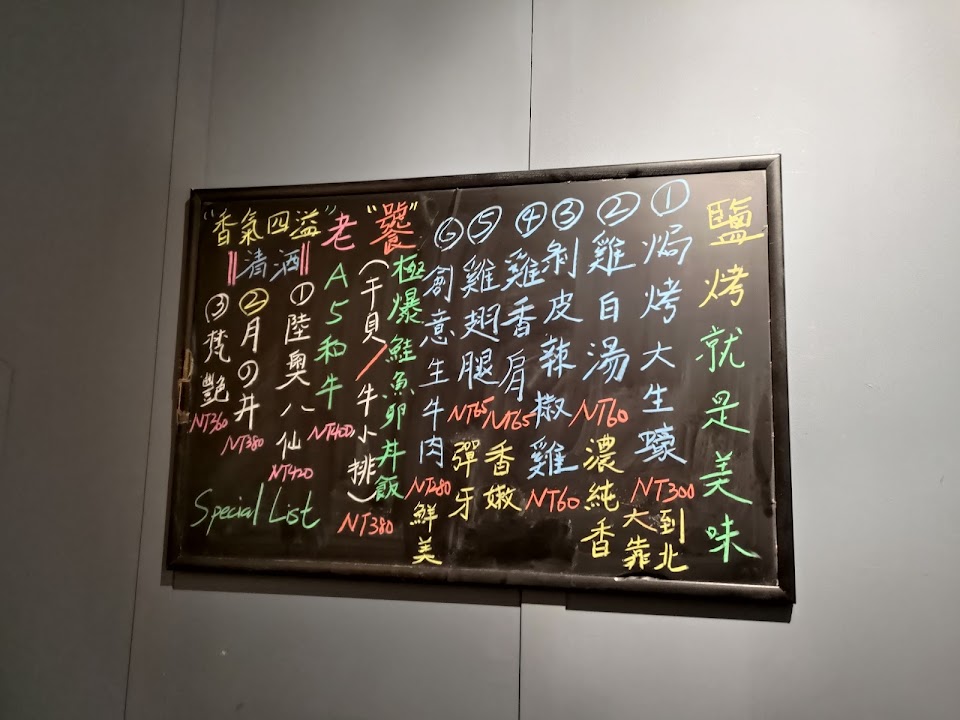 鹽烤就是美味
①焗烤大生蠔 NT300
大到
靠北
②雞白湯 NT60
濃純香
③剝皮辣椒雞 NT60
④雞香肩 NT65
香嫩
⑤雞翅腿 NT65
彈牙
⑥創意生牛肉 NT280
鮮美
老“饕”
極爆鮭魚卵丼飯
(干貝/牛小排) NT380
A5和牛 NT400
“香氣四溢”
清酒
①陸奧八仙 NT420
②月の井 NT380
③梵艷 NT360
Special List